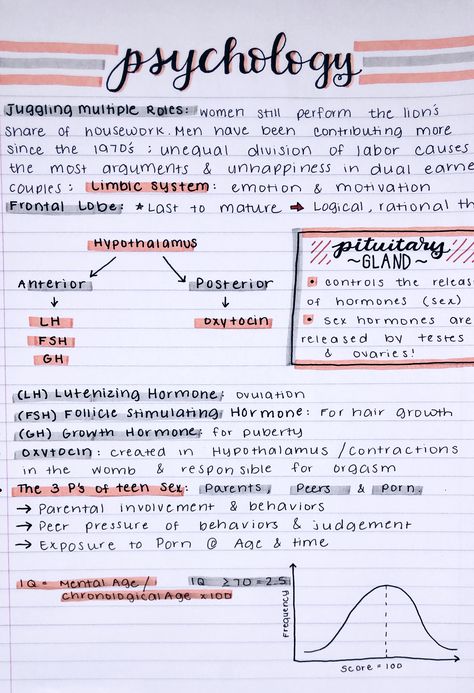 psychology
Juggling Multiple Roles: Women still perform the lion's
share of housework. Men have been contributing more
since the 1970's ; unequal division of labor causes
the most arguments & unhappiness in dual earne
couples ; Limbic System: emotion & motivation
Frontal Lobe: * Last to mature → Logical, rational th
Hypothalamus
Anterior
LH
FSH
GH
Posterior
Oxytocin
pituitary
~GLAND~
controls the releas
of hormones (sex)
sex hormones are
released by testes
& ovaries!
(LH) Lutenizing Hormone: ovulation
(FSH) Follicle Stimulating Hormone: For hair growth
(GH) Growth Hormone: for puberty
Oxytocin: created in Hypothalamus / contractions
in the womb & responsible for orgasm
• The 3 P's of teen sex: Parents, Peers & Porn.
→ Parental involvement & behaviors
→ Peer pressure of behaviors & judgement
→ Exposure to Porn @ Age & time
IQ = Mental Age /
chronological Age x100
IQ ≥70 = 2.5
Frequency
Score = 100